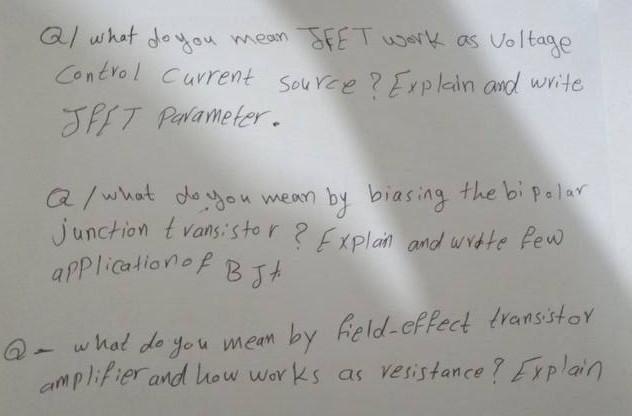 Q/ what do you mean JFET work as Voltage
Control Current Source? Explain and write
JFET Parameter.
Q/what do you mean by biasing the bipolar
junction transistor? Explain and write few
application of BJt
Q- what do you mean by field-effect transistor
amplifier and how works as resistance? Explain